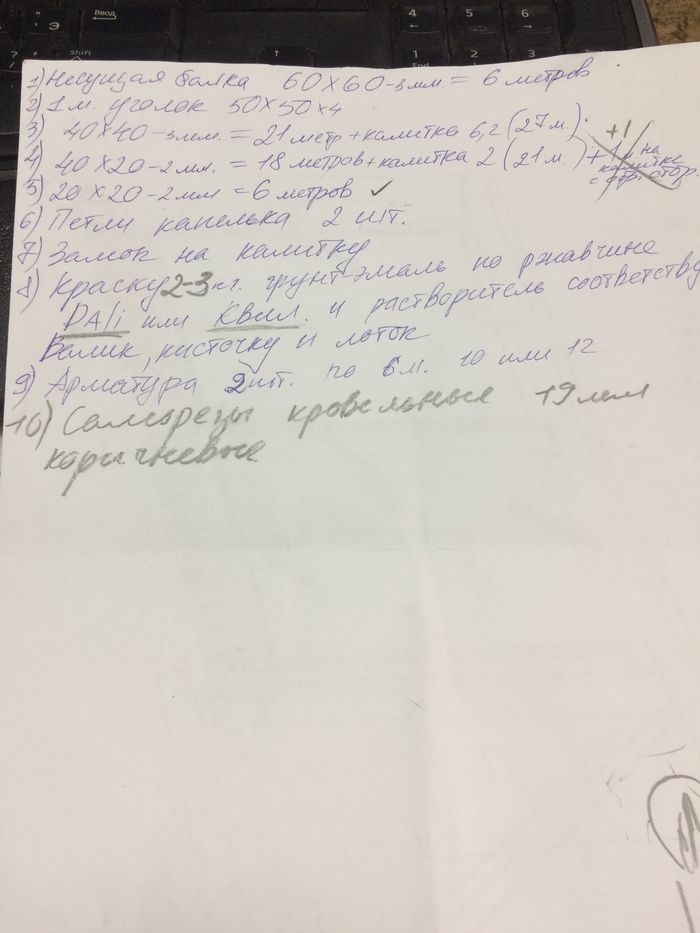 Ввод
Э
Shift
4
5
6
1
2
3
1) Несущая балка 60х60-3мм. = 6 метров
2) 1 м. уголок 50х50х4
3) 40х40-3мм. = 21 метр + калитка 6,2 (27м.)
+1
4) 40х20-2мм. = 18 метров + калитка 2 (21м.) + 1 на калитке с обр. стор.
5) 20х20-2мм = 6 метров ✓
6) Петли капелька 2 шт.
7) Замок на калитку
8) Краску 2-3 кг. грунт-эмаль по ржавчине
или и растворитель соответству
Валик, кисточку и лоток
9) Арматура 2шт. по 6м. 10 или 12
10) Саморезы кровельные 19мм
коричневые